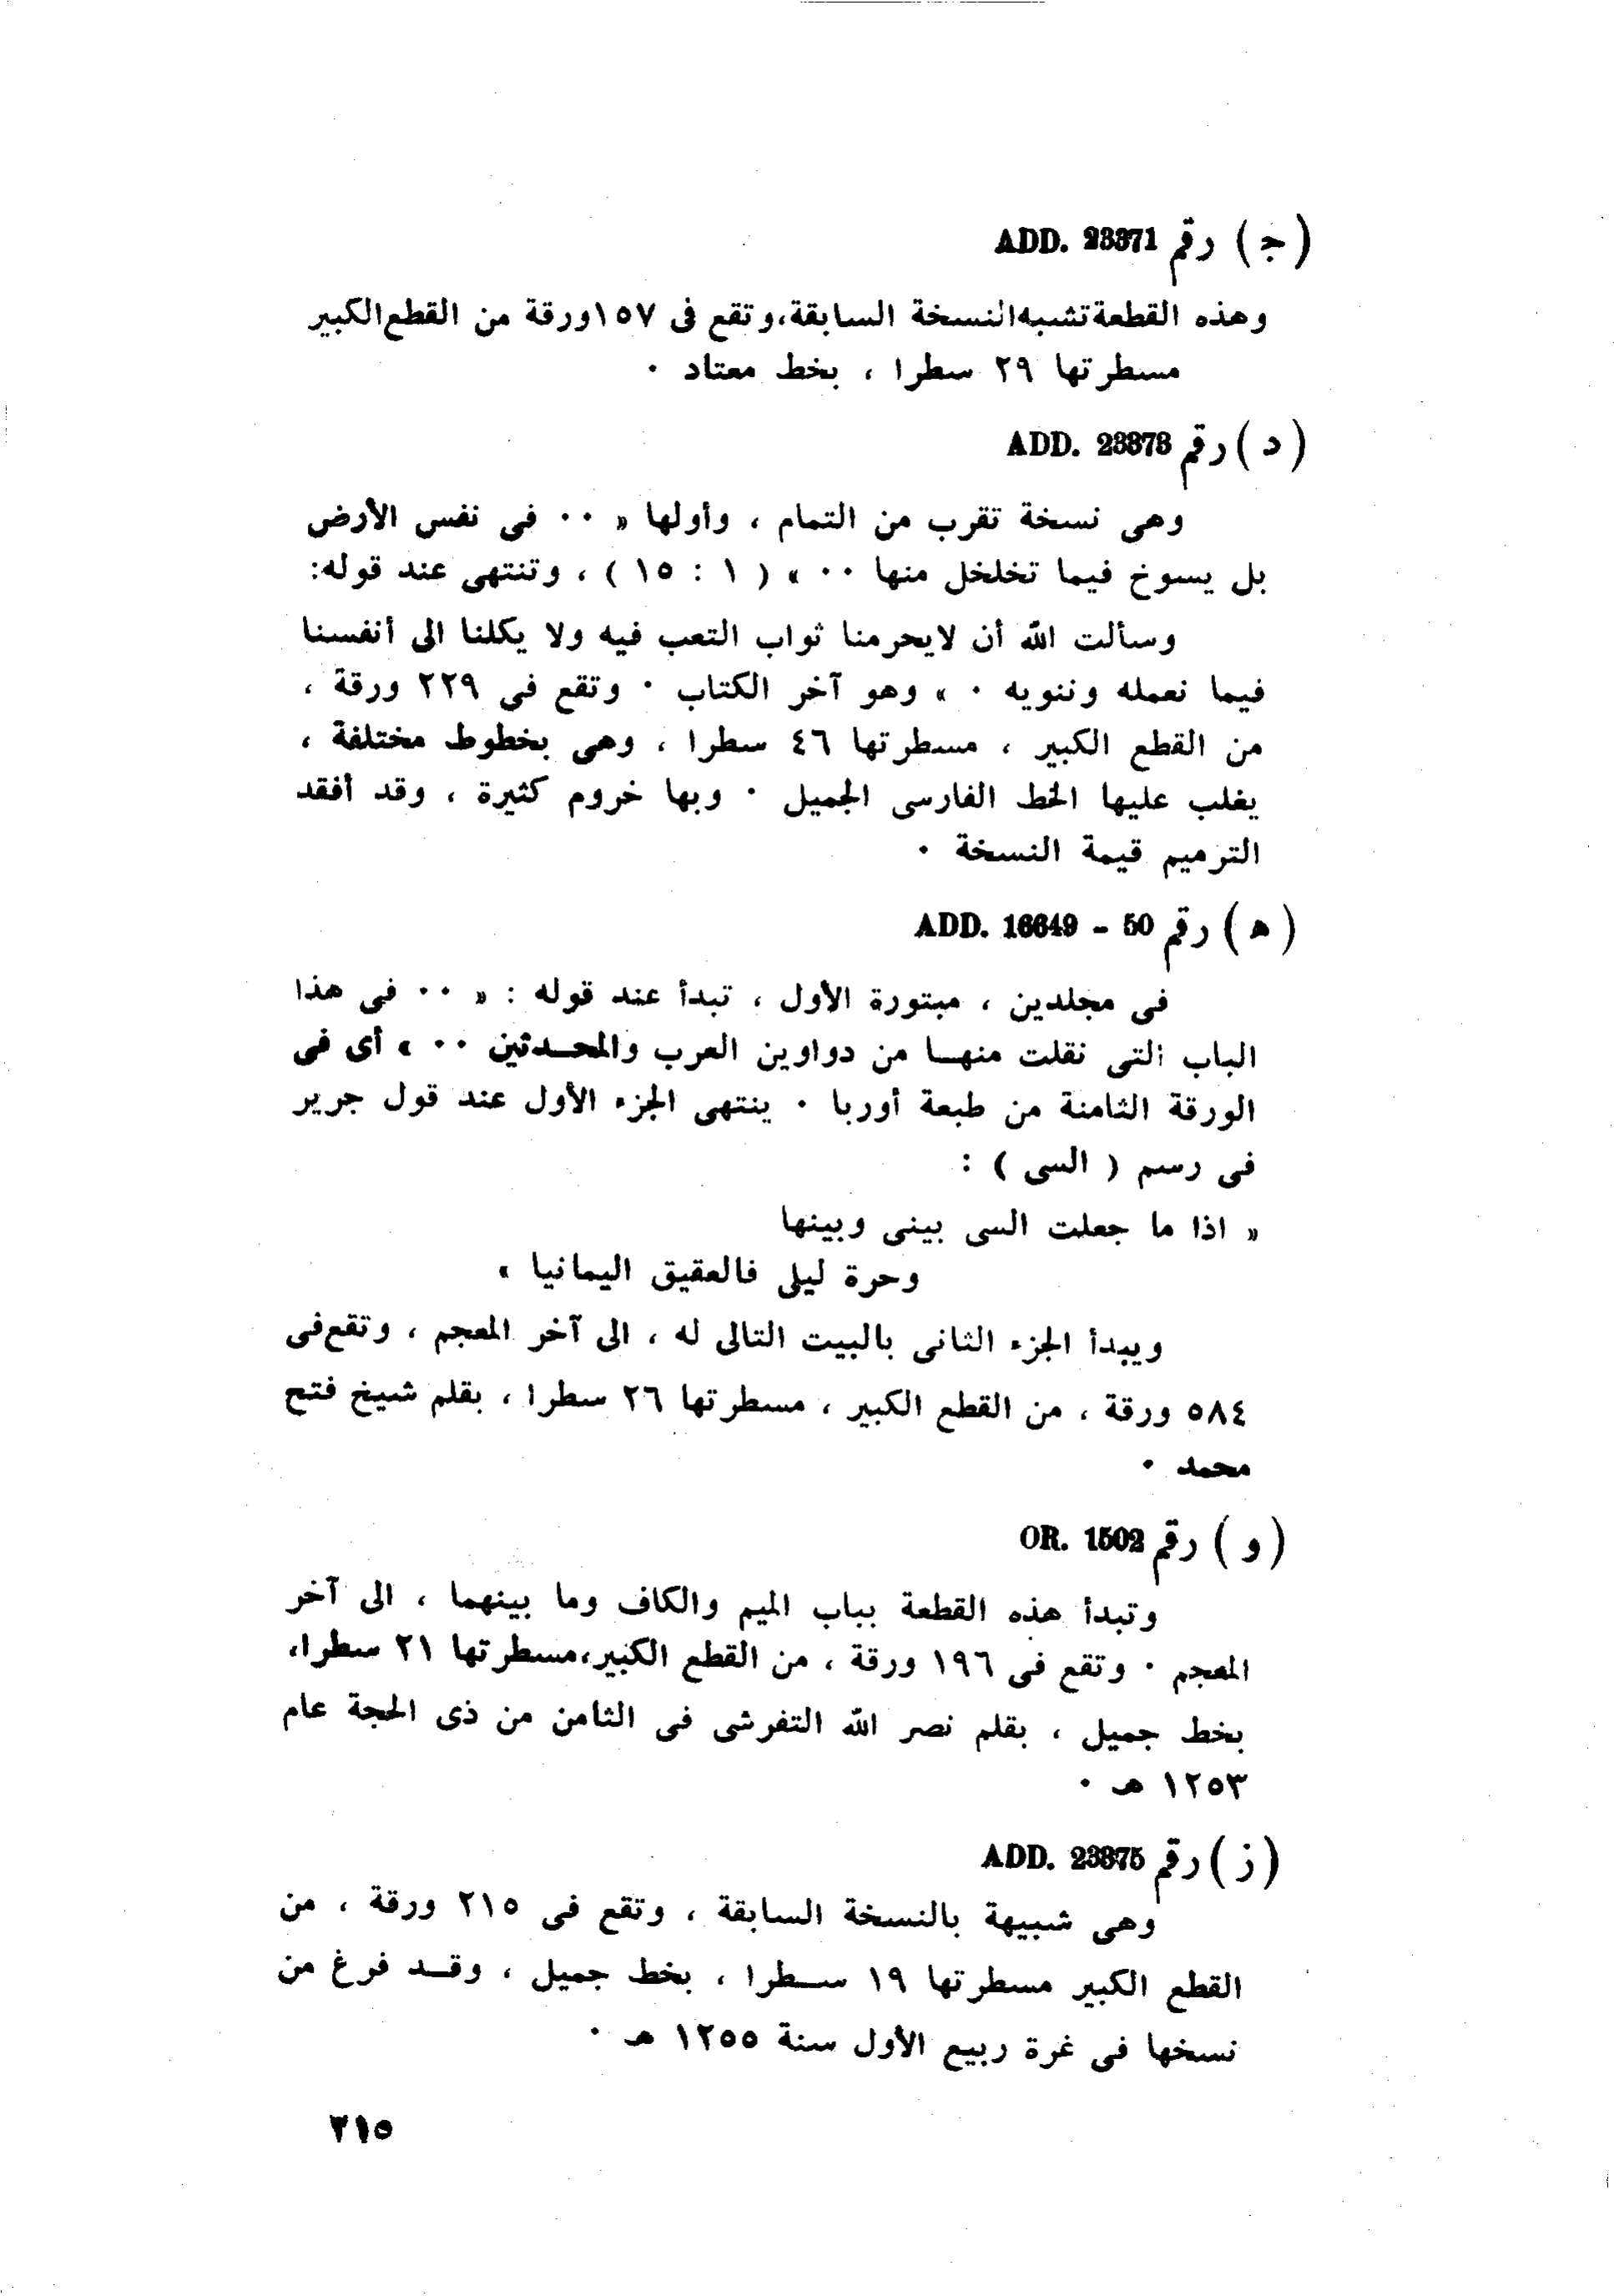 (ج) رقم ADD. 23371
وهذه القطعة تشبه النسخة السابقة، وتقع فى ١٥٧ ورقة من القطع الكبير
مسطرتها ٢٩ سطرا ، بخط معتاد ٠
(د) رقم ADD. 23373
وهى نسخة تقرب من التمام ، وأولها « ٠٠ فى نفس الأرض
بل يسوخ فيما تخلخل منها ٠٠ » ( ١ : ١٥ ) ، وتنتهى عند قوله:
وسألت الله أن لايحرمنا ثواب التعب فيه ولا يكلنا الى أنفسنا
فيما نعمله وننويه ٠ » وهو آخر الكتاب ٠ وتقع فى ٢٢٩ ورقة ،
من القطع الكبير ، مسطرتها ٤٦ سطرا ، وهى بخطوط مختلفة ،
يغلب عليها الخط الفارسى الجميل ٠ وبها خروم كثيرة ، وقد أفقد
الترميم قيمة النسخة ٠
(ه) رقم ADD. 16649 - 50
فى مجلدين ، مبتورة الأول ، تبدأ عند قوله : « ٠٠ فى هذا
الباب التى نقلت منهـا من دواوين العرب والمحـدثين ٠٠ » أى فى
الورقة الثامنة من طبعة أوربا ٠ ينتهى الجزء الأول عند قول جرير
فى رسم ( السى ) :
« اذا ما جعلت السى بينى وبينها
وحرة ليلى فالعقيق اليمانيا »
ويبدأ الجزء الثانى بالبيت التالى له ، الى آخر المعجم ، وتقع فى
٥٨٤ ورقة ، من القطع الكبير ، مسطرتها ٢٦ سطرا ، بقلم شيخ فتح
محمد ٠
(و) رقم OR. 1502
وتبدأ هذه القطعة بباب الميم والكاف وما بينهما ، الى آخر
المعجم ٠ وتقع فى ١٩٦ ورقة ، من القطع الكبير، مسطرتها ٢١ سطرا،
بخط جميل ، بقلم نصر الله التفرشى فى الثامن من ذى الحجة عام
١٢٥٣ هـ ٠
(ز) رقم ADD. 23375
وهى شبيهة بالنسخة السابقة ، وتقع فى ٢١٥ ورقة ، من
القطع الكبير مسطرتها ١٩ سـطرا ، بخط جميل ، وقـد فرغ من
نسخها فى غرة ربيع الأول سنة ١٢٥٥ هـ ٠
٢١٥